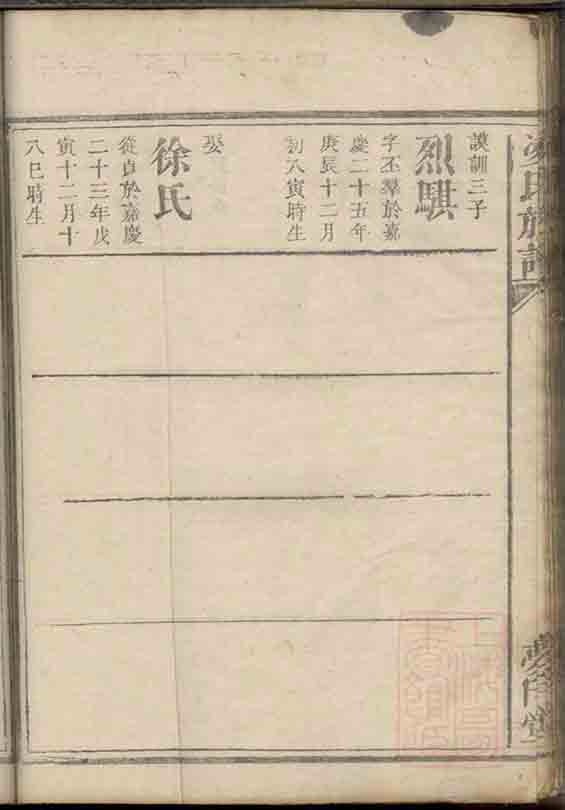 謨訓三子
烈騏
字丕羣於嘉
慶二十五年
庚辰十二月
初八寅時生
娶
徐氏
從貞於嘉慶
二十三年戊
寅十二月十
八巳時生
氏族譜
堂